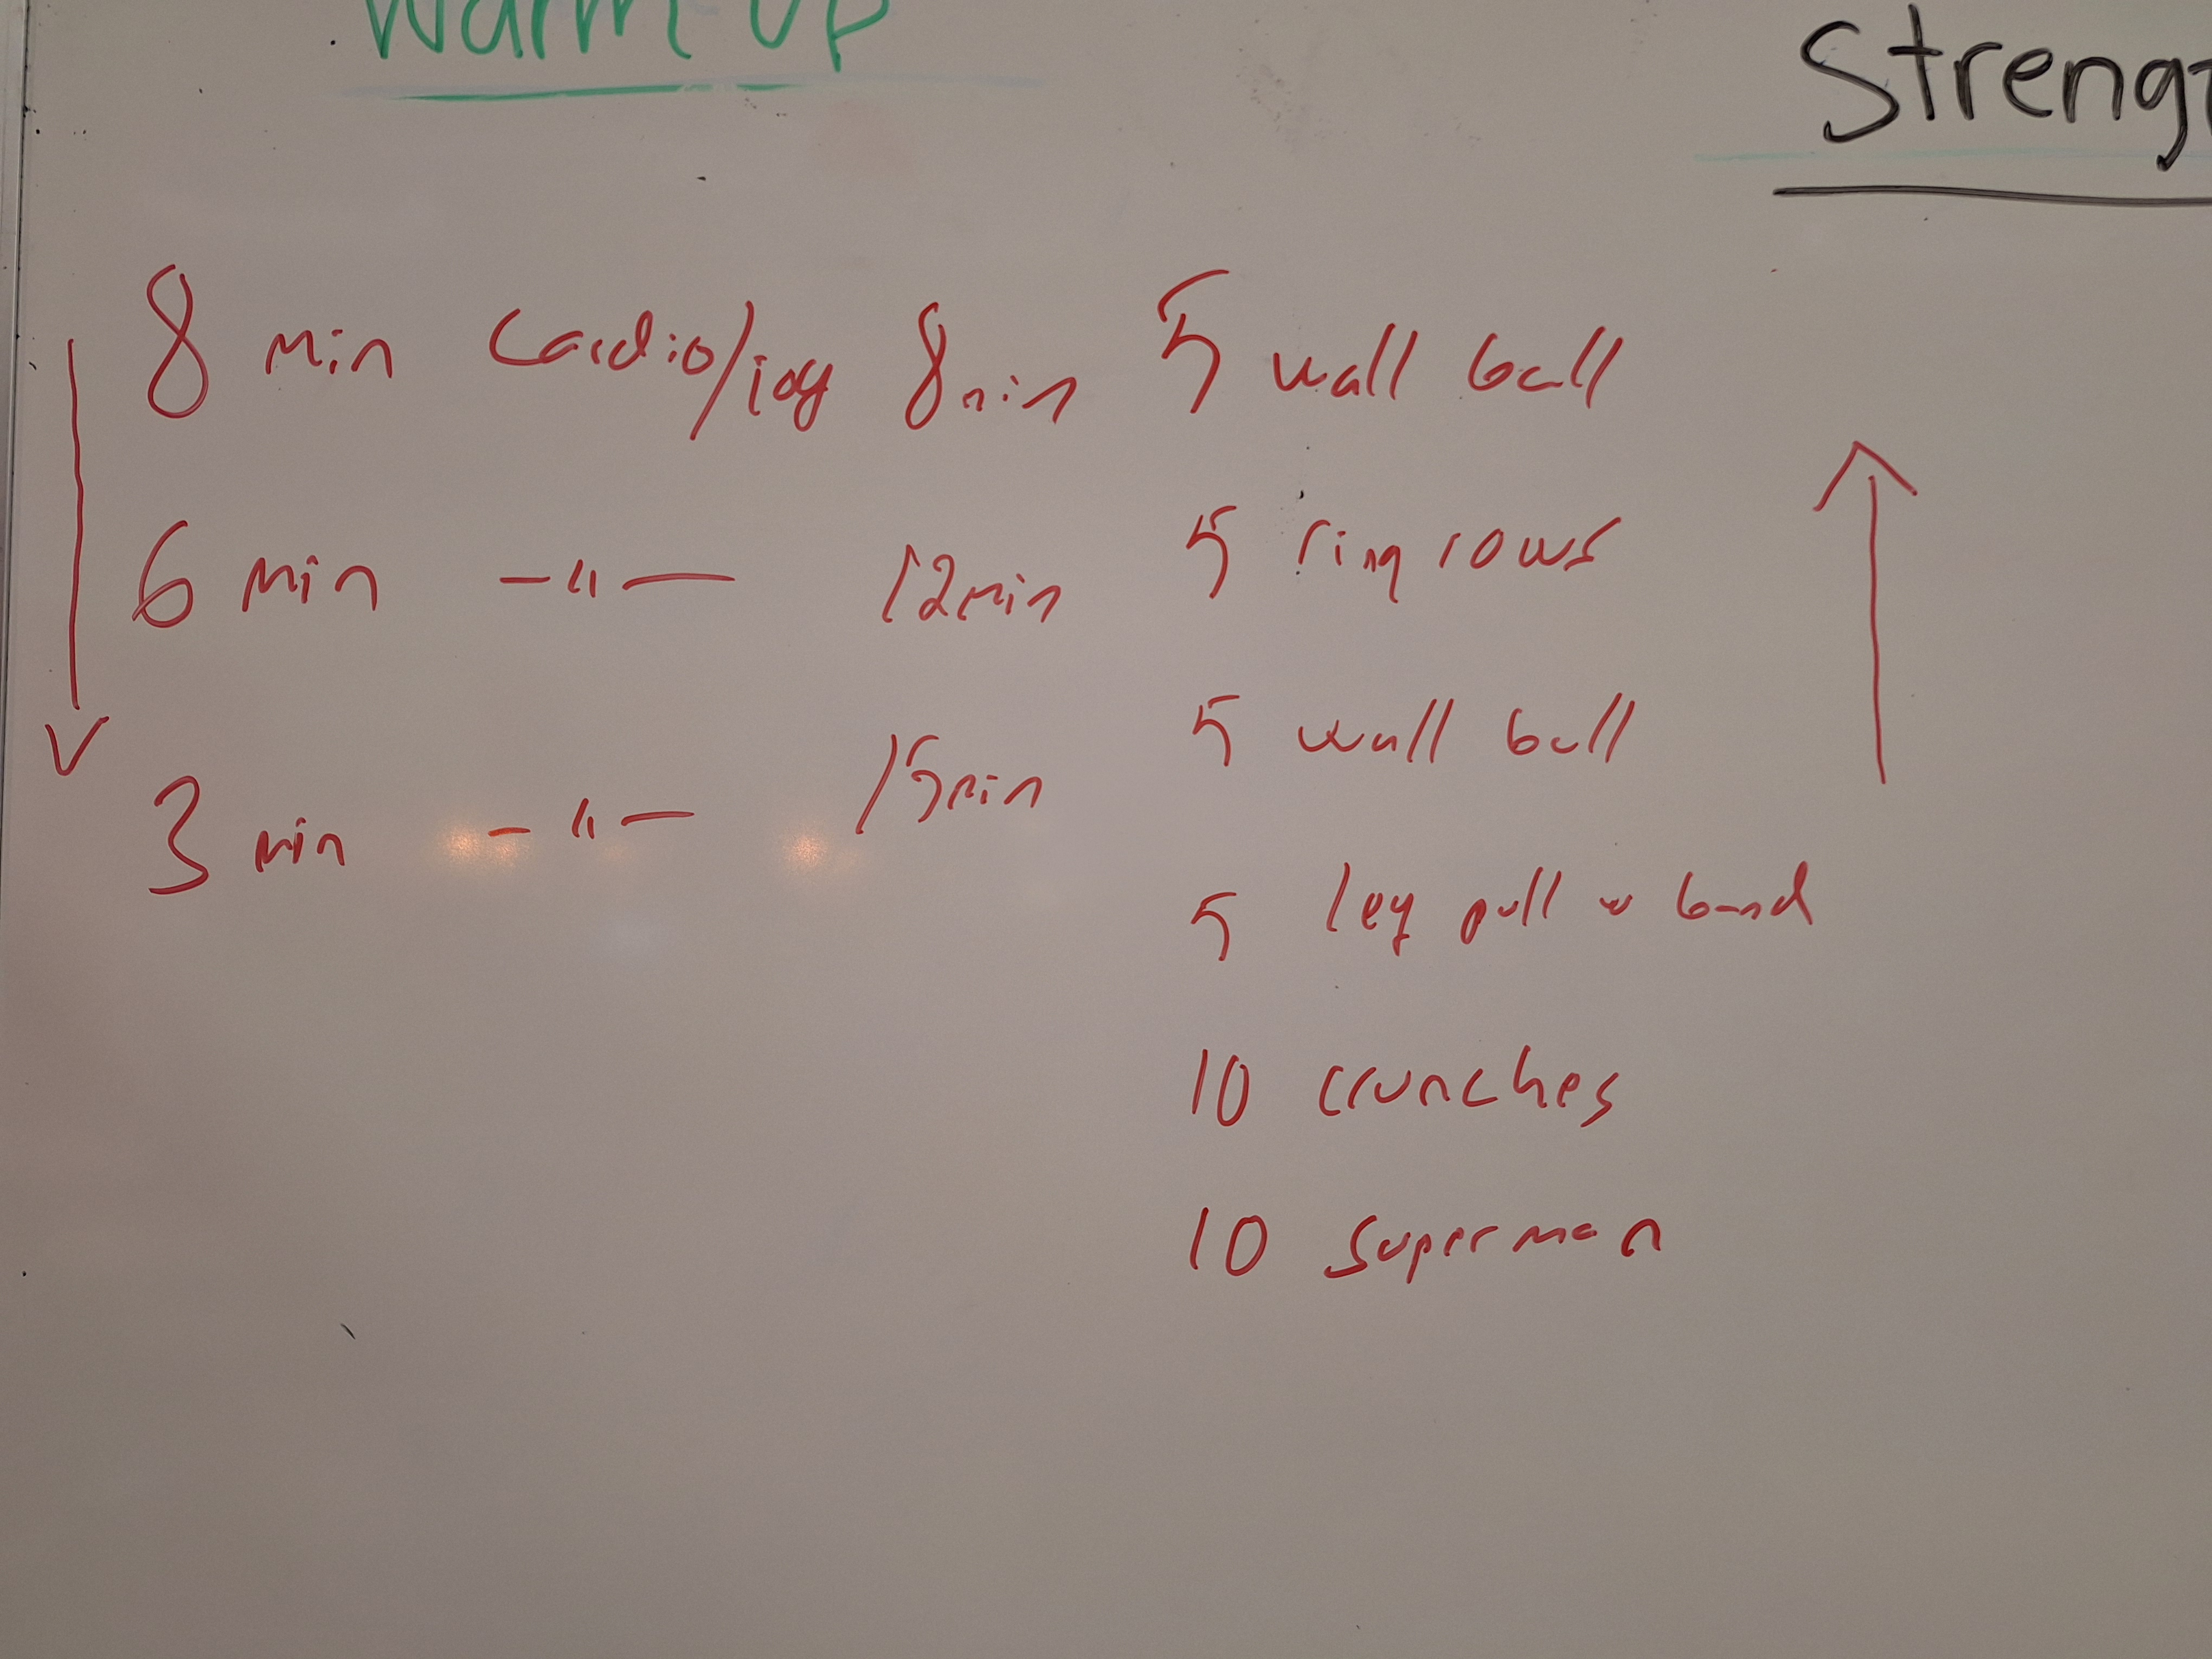 Warm Up
Streng
8 min Cardio/jog 8min 5 wall ball
6 min -"- 12min 5 ring rows
5 wall ball
3 min -"- 15min
5 leg pull w band
10 crunches
10 superman